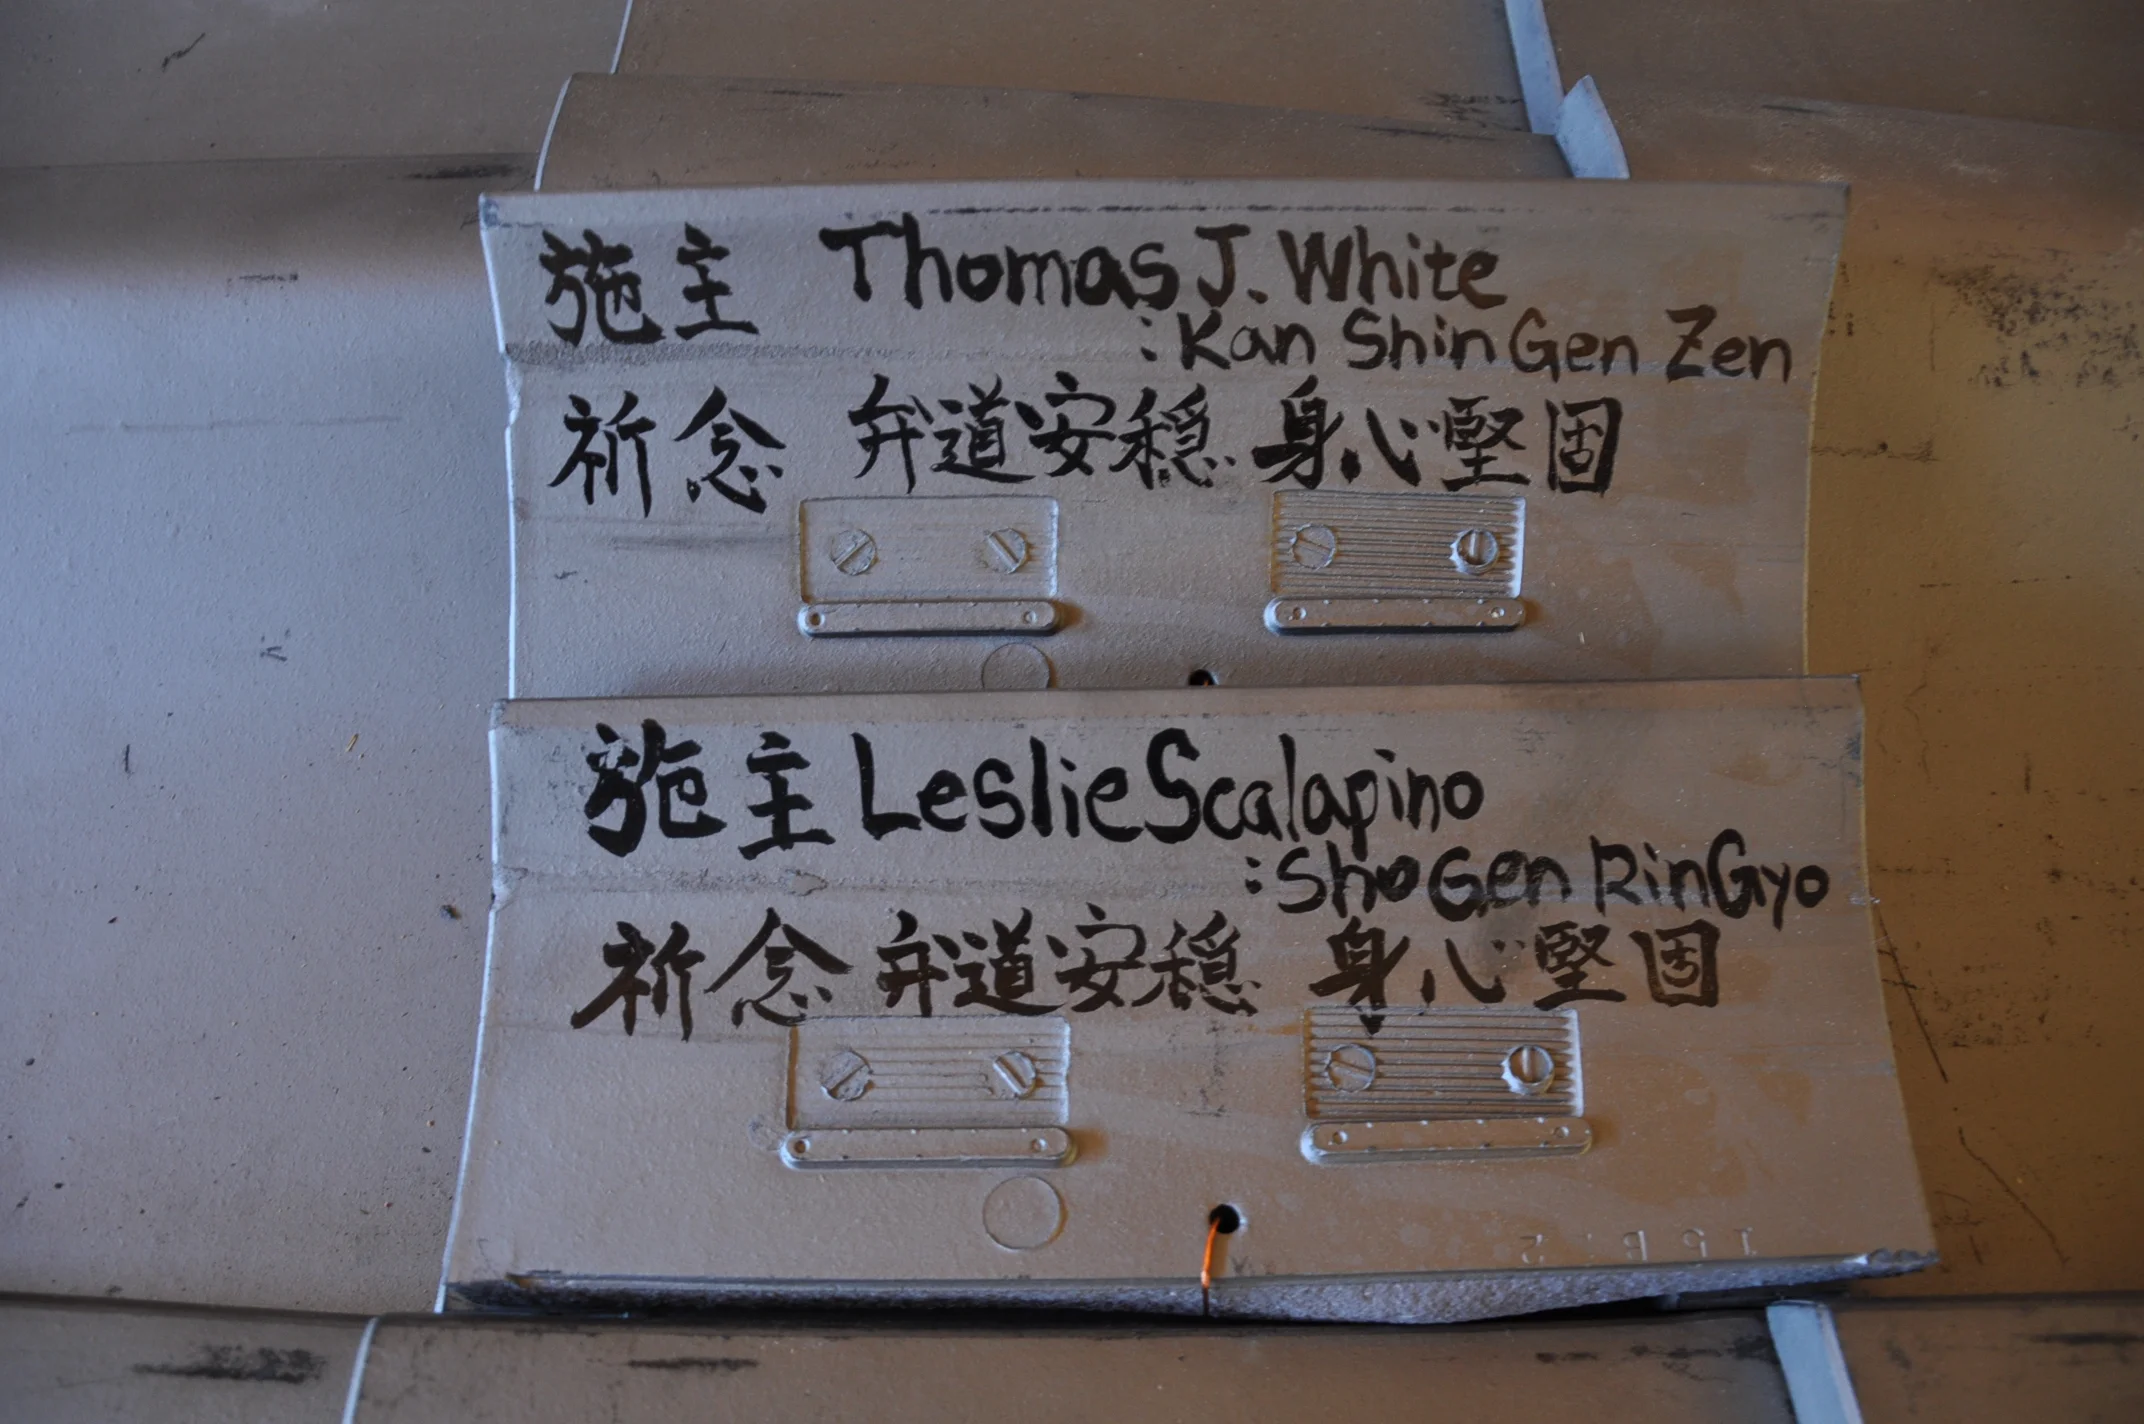 施主 Thomas J. White
: Kan Shin Gen Zen
祈念 弁道安穏 身心堅固
施主 Leslie Scalapino
: Sho Gen Rin Gyo
祈念 弁道安穏 身心堅固